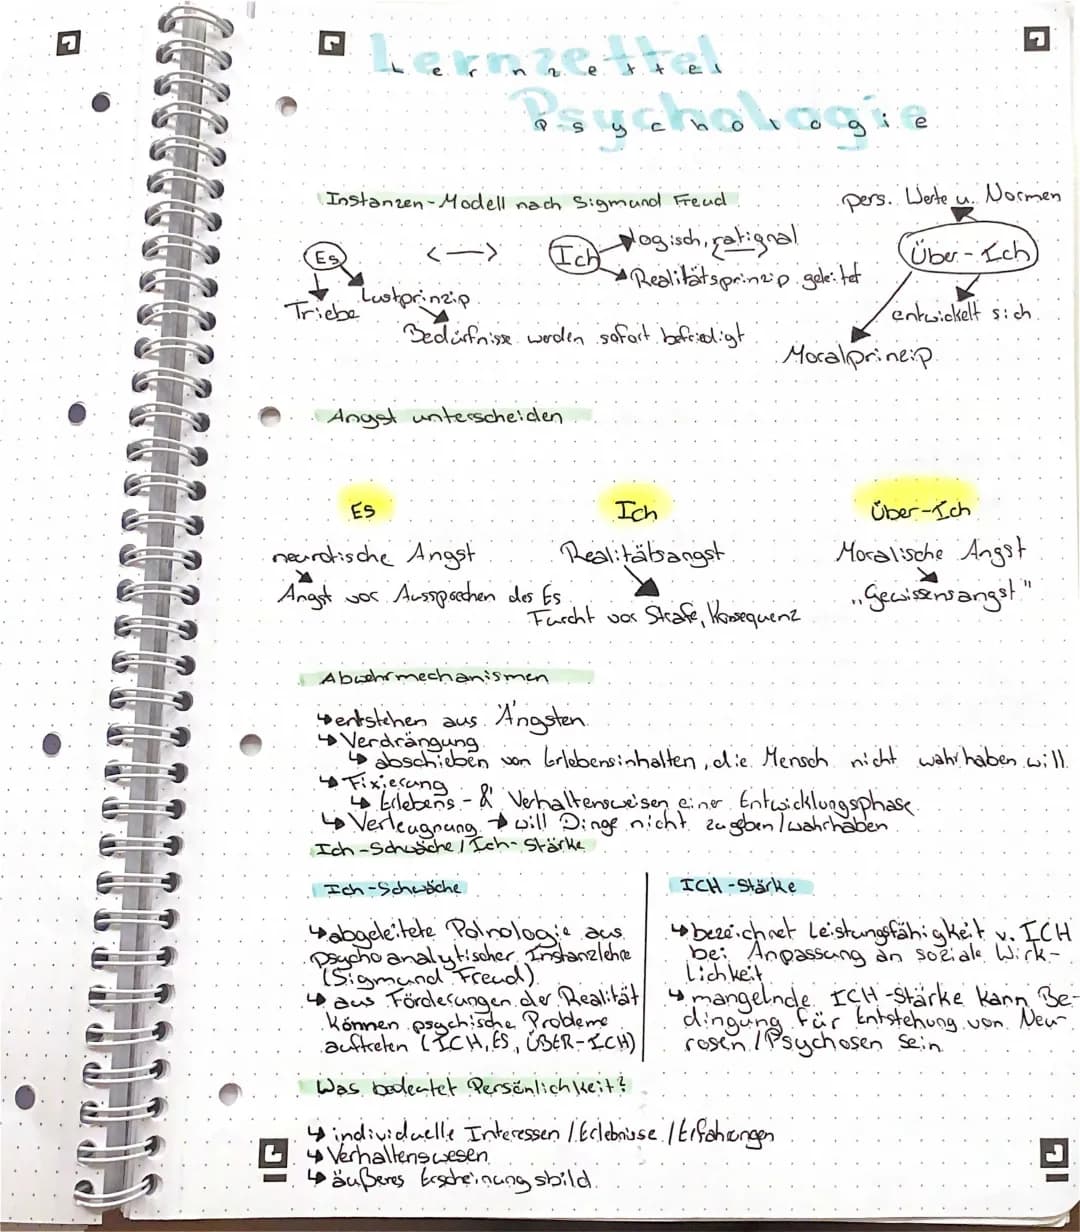 Lernzettel
Psychologie
Instanzen-Modell nach Sigmund Freud
pers. Werte u. Normen
Es
Ich
logisch, rational
Über-Ich
Realitätsprinzip geleitet
Triebe
Lustprinzip
entwickelt sich
Bedürfnisse werden sofort befriedigt
Moralprinzip
Angst unterscheiden
Es
Ich
Über-Ich
neurotische Angst
Realitätsangst
Moralische Angst
Angst vor Aussprechen des Es
Furcht vor Strafe, Konsequenz
„Gewissensangst"
Abwehrmechanismen
↳ entstehen aus Ängsten
↳ Verdrängung
↳ abschieben von Erlebensinhalten, die Mensch nicht wahrhaben will
↳ Fixierung
↳ Erlebens- & Verhaltensweisen einer Entwicklungsphase
↳ Verleugnung → will Dinge nicht zugeben/wahrhaben
Ich-Schwäche / Ich-Stärke
Ich-Schwäche
↳ abgeleitete Patnologie aus
psychoanalytischer Instanzlehre
(Sigmund Freud)
↳ aus Förderungen der Realität
können psychische Probleme
auftreten (ICH, ES, ÜBER-ICH)
ICH-Stärke
↳ bezeichnet Leistungsfähigkeit v. ICH
bei Anpassung an soziale Wirk-
lichkeit
↳ mangelnde ICH-Stärke kann Be-
dingung für Entstehung von Neu-
rosen / Psychosen sein
Was bedeutet Persönlichkeit?
↳ individuelle Interessen / Erlebnisse / Erfahrungen
↳ Verhaltenswesen
↳ äußeres Erscheinungsbild